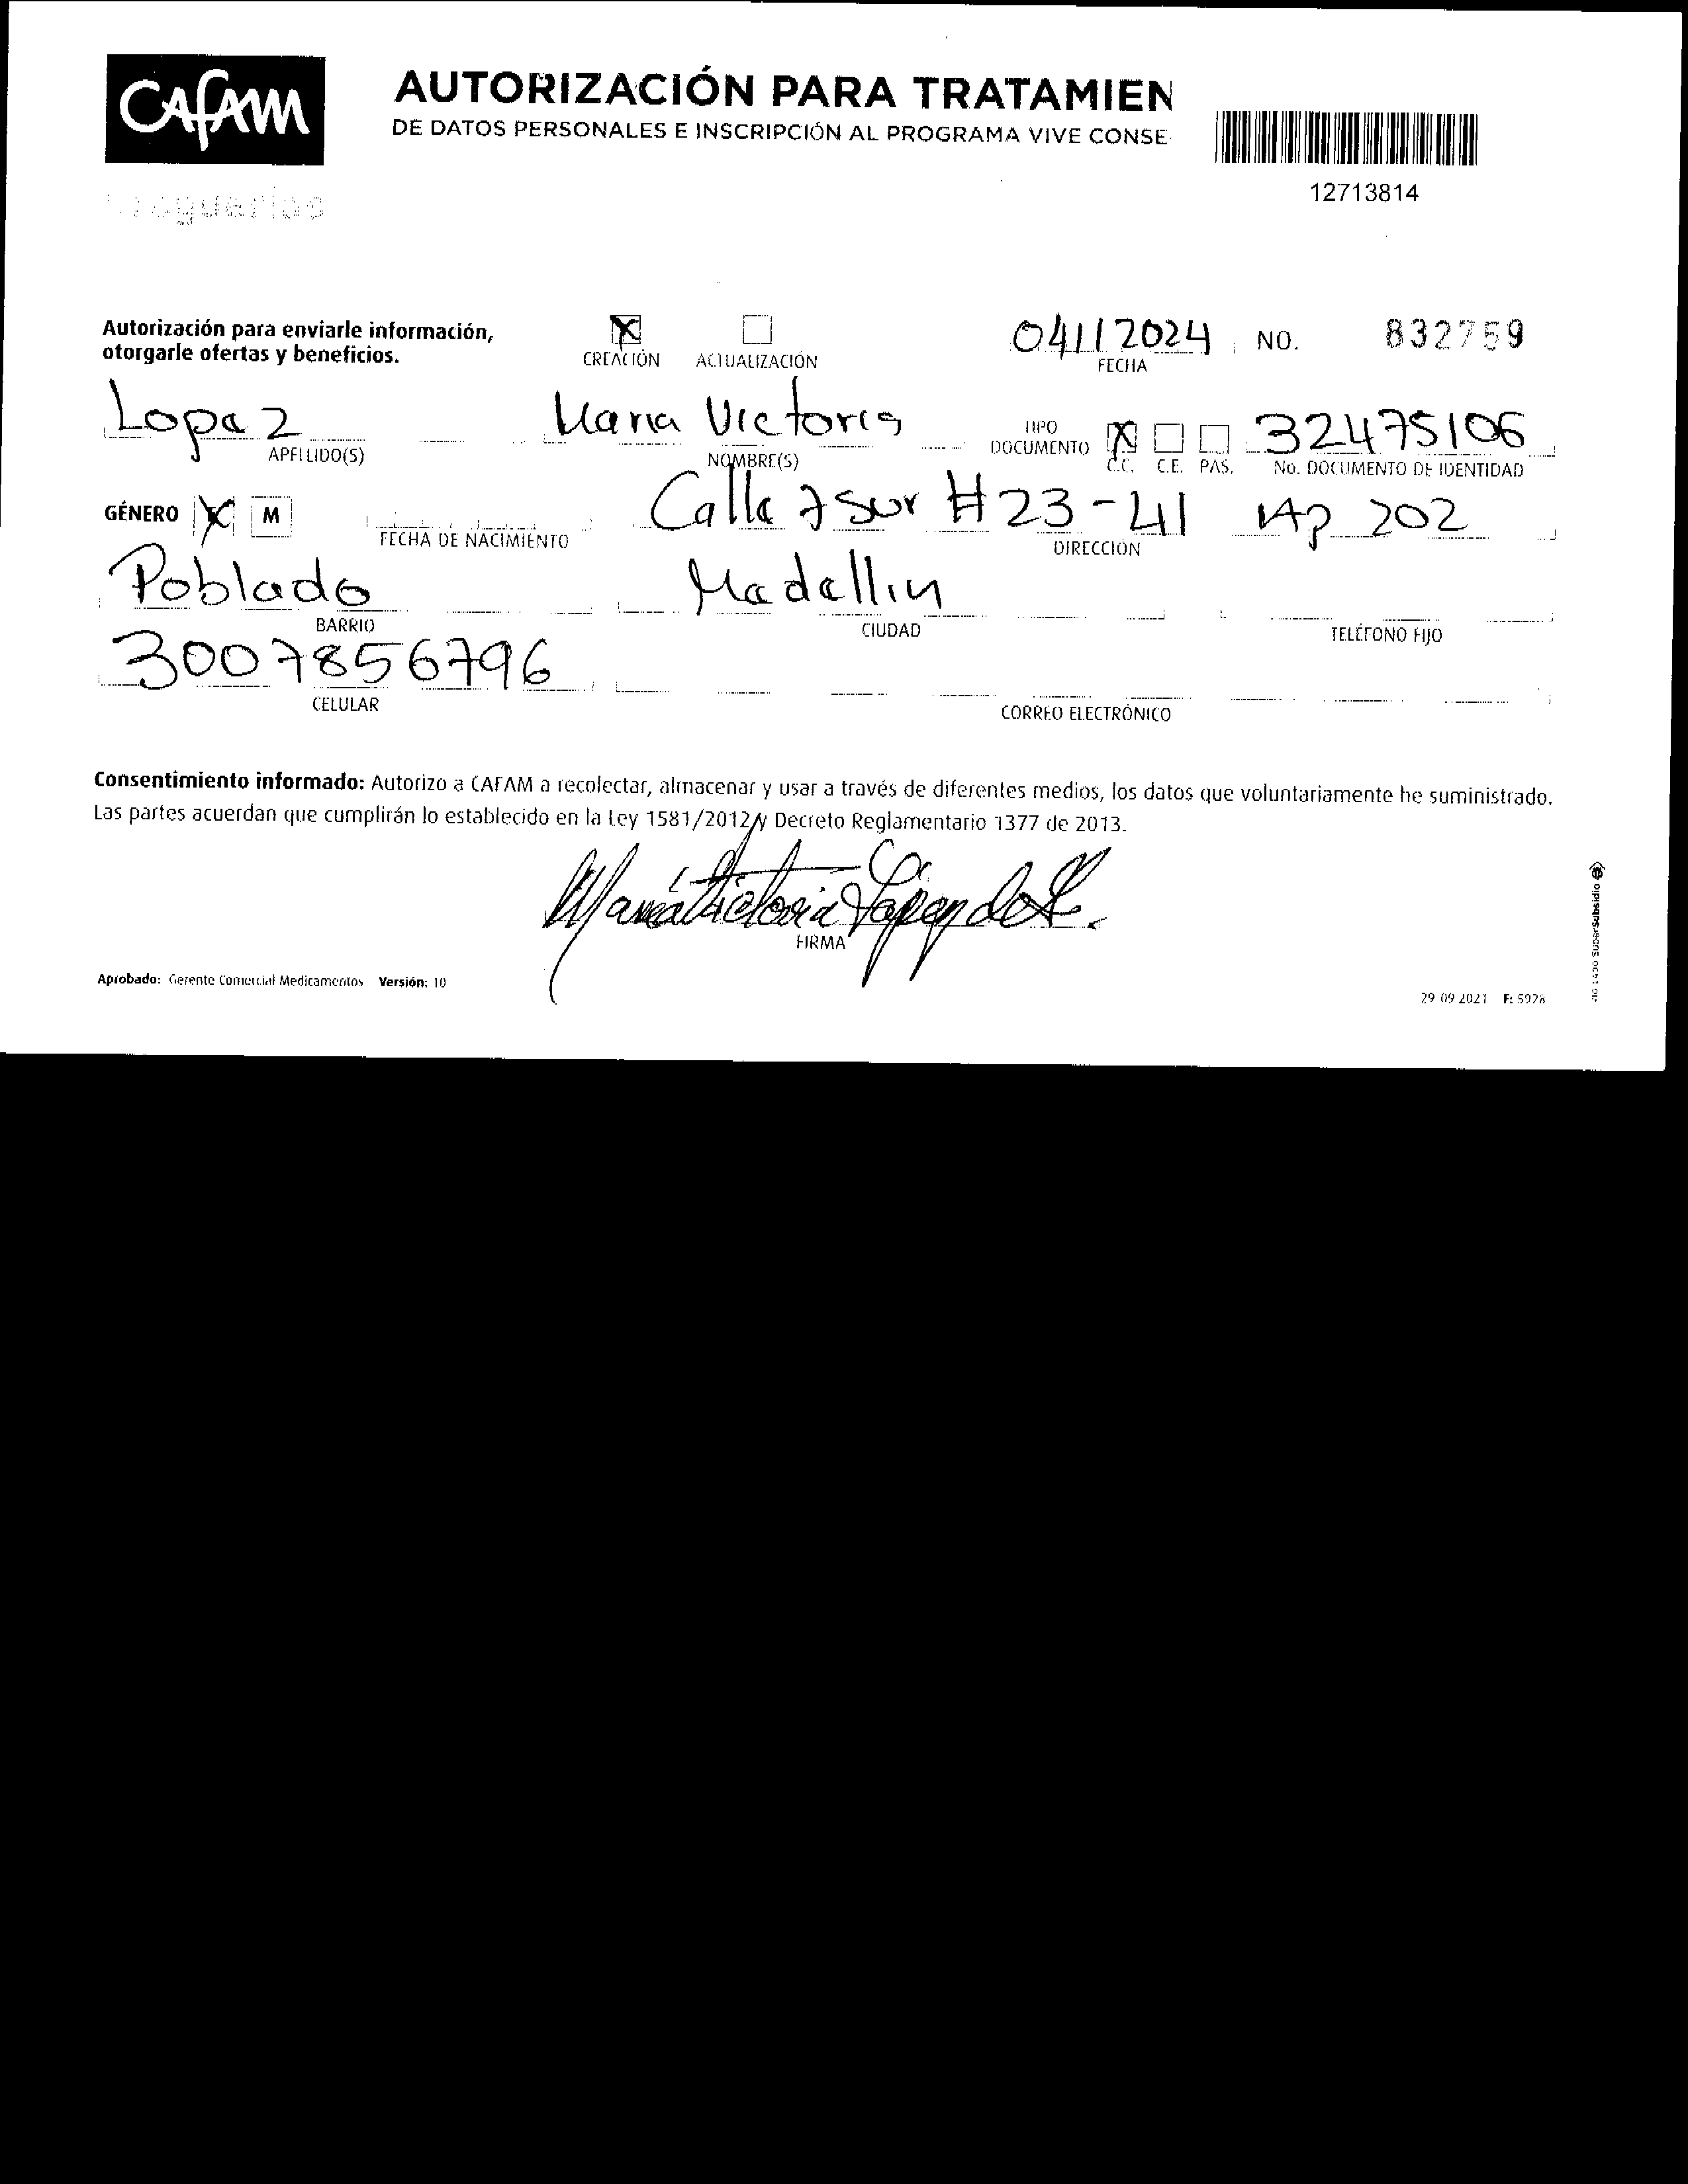 CAFAM
AUTORIZACIÓN PARA TRATAMIEN
DE DATOS PERSONALES E INSCRIPCIÓN AL PROGRAMA VIVE CONSE
12713814
Droguerías
Autorización para enviarle información,
otorgarle ofertas y beneficios.
X
CREACIÓN ACTUALIZACIÓN
04/1/2024 NO. 832759
FECHA
Lopez Maria Victoria TIPO DOCUMENTO X 32475106
APELLIDO(S) NOMBRE(S) C.C. C.E. PAS. No. DOCUMENTO DE IDENTIDAD
GÉNERO X M Calle 7 Sur #23-41 Ap 202
FECHA DE NACIMIENTO DIRECCIÓN
Poblado Medellin
BARRIO CIUDAD TELÉFONO FIJO
3007856796
CELULAR CORREO ELECTRÓNICO
Consentimiento informado: Autorizo a CAFAM a recolectar, almacenar y usar a través de diferentes medios, los datos que voluntariamente he suministrado.
Las partes acuerdan que cumplirán lo establecido en la Ley 1581/2012 y Decreto Reglamentario 1377 de 2013.
María Victoria López de
FIRMA
Aprobado: Gerente Comercial Medicamentos Versión: 10
29 09 2021 F: 5928
SuperSubsidio